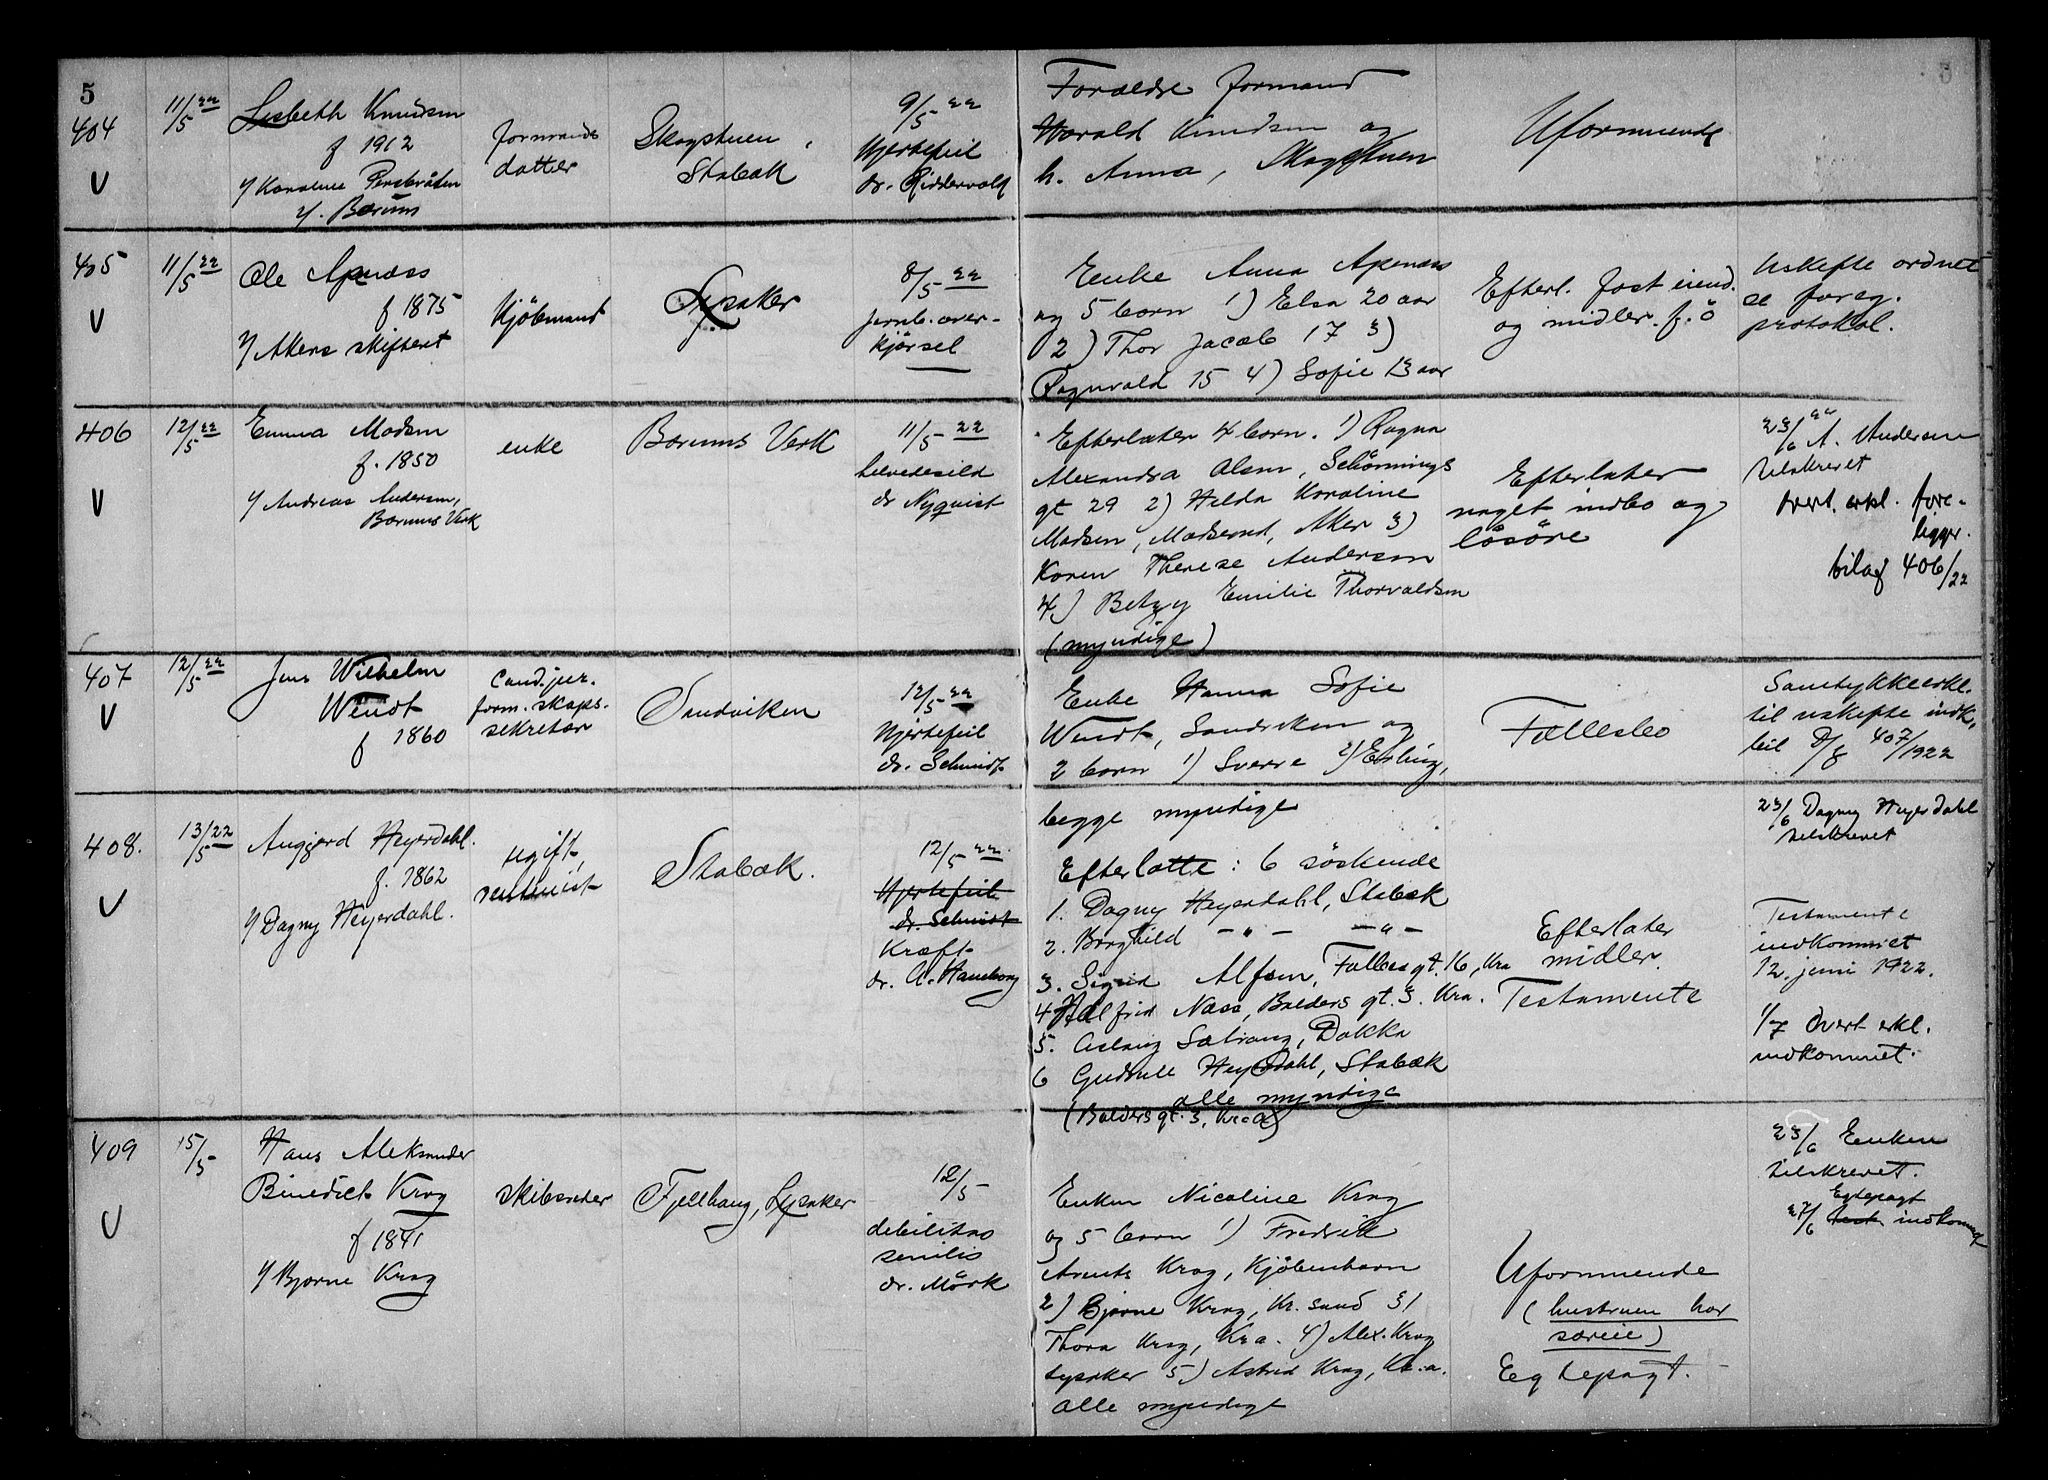 5
404
V
11/5 22
Lisbeth Knudsen
f 1912
v/ Karoline
v. Bærum
formands
datter
Skogstuen,
Stabæk
9/5 22
Hjertefeil
dr. Riddervold
Forældre formand
Harald Knudsen og
h. Anna, Skogstuen
Uformuende
405
V
11/5 22
Ole Apenæss
f 1875
v/ Akers skifteret
Kjöbmand
Lysaker
8/5 22
jernb. over-
kjörsel
Enke Anna Apenæs
og 5 barn 1) Elsa 20 aar
2) Thor Jacob 17 3)
Ragnvald 15 4) Sofie 13 aar
Efterl. fast eiend.
og midler. f. ö
Uskifte ordnet
se foreg.
protokol.
406
V
12/5 22
Emma Madsen
f. 1850
v/ Andreas Andersen,
Bærums Verk
enke
Bærums Verk
11/5 22
helvedesild
dr Nyquist
Efterlater 4 barn. 1) Ragna
Alexandra Olsen, Schönnings
gt 29 2) Hilda Karoline
Madsen, Madserud, Aker 3)
Karen Therese Andersen
4) Betzy Emilie Thorvaldsen
(myndige)
Efterlater
noget indbo og
lösöre
23/6 22 A. Andersen
tilskrevet
overt. erkl. fore-
ligger.
bilag 406/22
407
V
12/5 22
Jens Wilhelm
Wendt
f 1860
Cand. jur.
form.skaps.
sekretær
Sandviken
12/5 22
Hjertefeil
dr. Schmidt
Enke Hanna Sofie
Wendt, Sandviken og
2 barn 1) Sverre 2) Erling,
begge myndige
Fællesbo
Samtykkeerkl.
til uskifte indk,
bil 407/1922
408.
V
13/5 22
Angjerd Heyerdahl.
f. 1862
v/ Dagny Heyerdahl.
ugift,
rentenist
Stabæk.
12/5 22
Hjertefeil
dr. Schmidt
Kræft
dr. A. Hansborg
Efterlatte: 6 söskende
1. Dagny Heyerdahl, Stabæk
2. Borghild - " - - " -
3. Sigrid Alfsen, Falbes gt. 16, Kra
4 Halfrid Næss, Balders gt. 3. Kra.
5. Aslaug Sætrang, Dokka
6 Gudrun Heyerdahl, Stabæk
alle myndige
(Balders gt. 3, Kr.a)
Efterlater
midler.
Testamente
23/6 Dagny Heyerdahl
tilskrevet
Testamente
indkommet
12. juni 1922.
1/7 Overt erkl.
indkommet.
409
V
15/5
Hans Aleksander
Benedict Krag
f 1841
v/ Bjarne Krag
skibsreder
Fjellhaug, Lysaker
12/5
debilitas
senilis
dr. Mörk
Enken Nicoline Krag
og 5 barn 1) Fredrik
Arents Krag, Kjöbenhavn
2) Bjarne Krag, Kr. sand 3)
Thora Krag, Kra. 4) Alex. Krag
Lysaker 5) Astrid Krag, Kr.a.
alle myndige
Uformuende
(hustruen har
særeie)
Egtepagt.
23/6 Enken
tilskrevet.
Egtepagt
27/6 test. indkommet